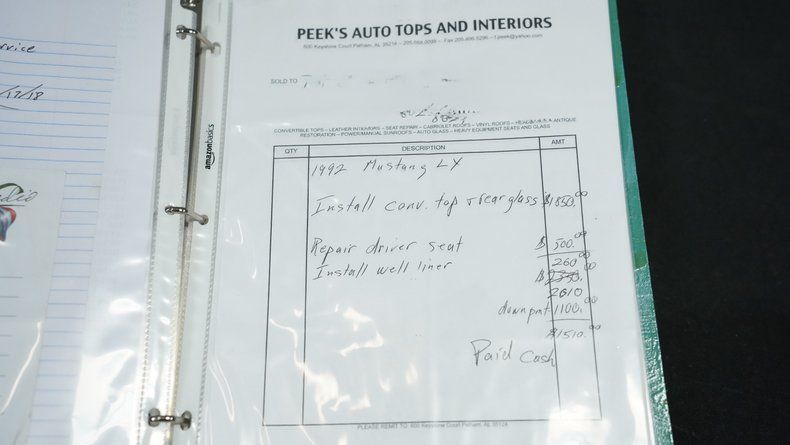 rvice
/17/18
amazonbasics
PEEK'S AUTO TOPS AND INTERIORS
600 Keystone Court Pelham, AL 35214 - 205-664-0099 - Fax 205-496-5296 - f.peek@yahoo.com
SOLD TO
CONVERTIBLE TOPS – LEATHER INTERIORS – SEAT REPAIR – CABRIOLET ROOFS – VINYL ROOFS – ANTIQUE
RESTORATION – POWER/MANUAL SUNROOFS – AUTO GLASS – HEAVY EQUIPMENT SEATS AND GLASS
QTY DESCRIPTION AMT
1992 Mustang LX
Install conv. top + rear glass $1850.00
Repair driver seat $500.00
Install well liner 260.00
$2350.00
2610
down pmt 1100.00
$1510.00
Paid Cash
PLEASE REMIT TO: 600 Keystone Court Pelham, AL 35124